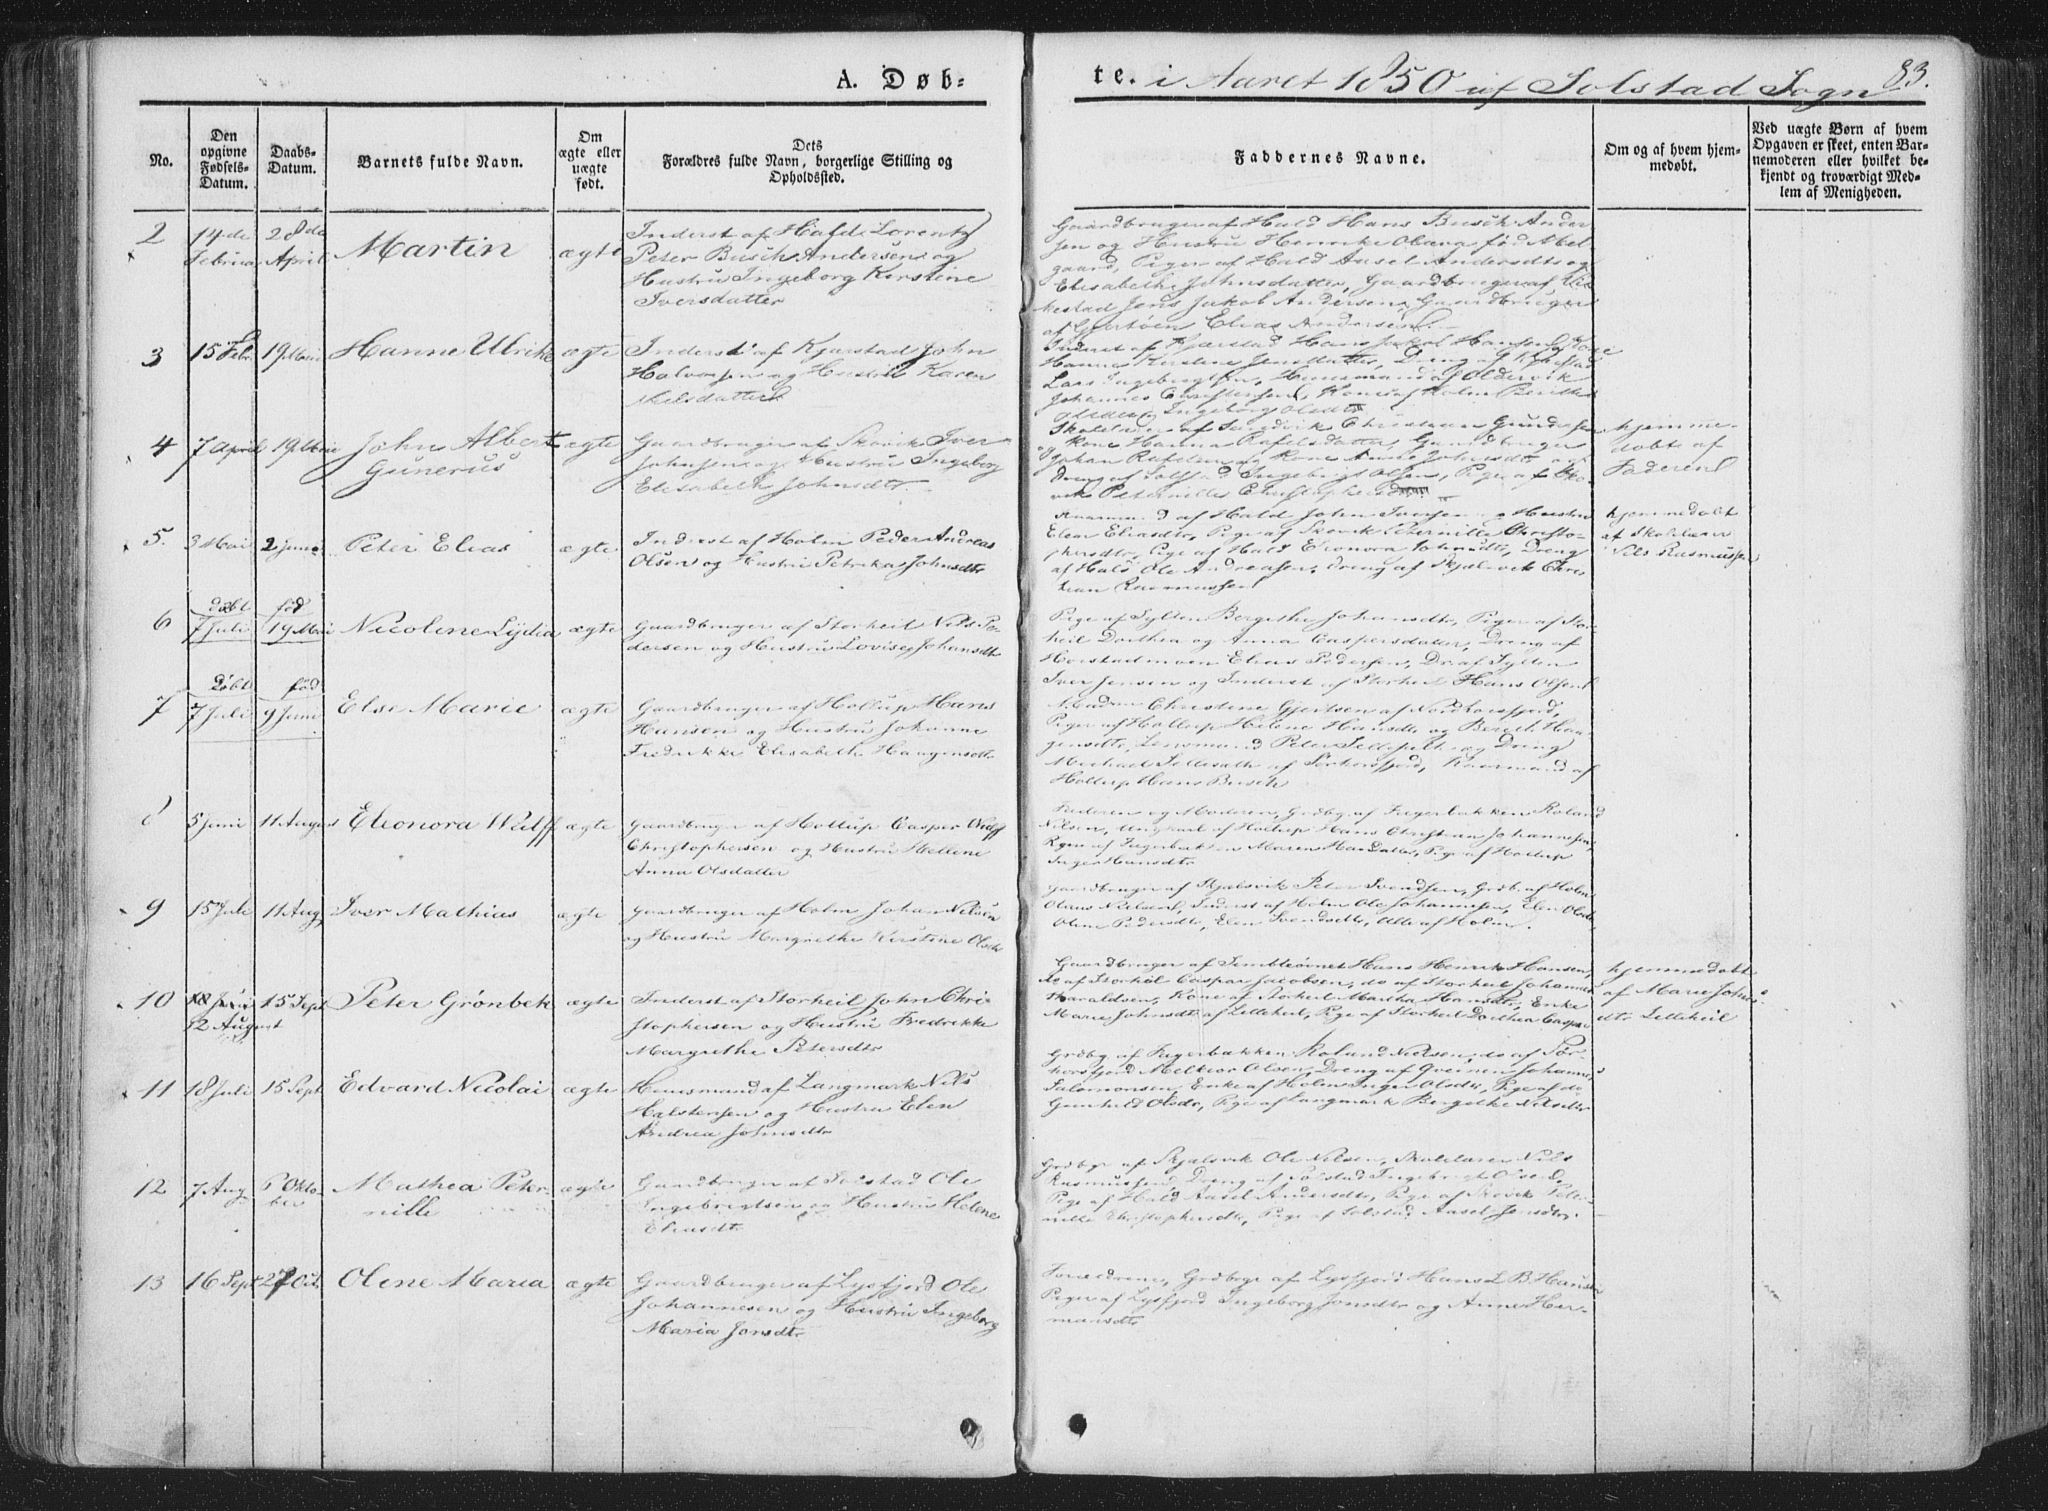 A. Døb-
te. i Aaret 1850 af Solstad Sogn 83.
No.
Den opgivne Fødsels-Datum.
Daabs-Datum.
Barnets fulde Navn.
Om ægte eller uægte født.
Dets Forældres fulde Navn, borgerlige Stilling og Opholdssted.
Faddernes Navne.
Om og af hvem hjemmedøbt.
Ved uægte Børn af hvem Opgaven er skeet, enten Barnemoderen eller hvilket bekjendt og troværdigt Medlem af Menigheden.
2 14de Februar 28de April Martin ægte
Inderst af Hald Lorentz
Peter Busch Andersen og
Hustru Ingeborg Kirstine
Iversdatter
Gaardbruger af Hald Hans Busch Ander-
sen og Hustru Henrike Olava fød Abel-
gaard, Piger af Hald Aasel Andersdtr og
Elisabeth Johnsdatter, Gaardbruger af Vik-
kestad Jens Jakob Andersen, Gaardbruger
af Elias Andersen
3 15 Febr 19 Mai Hanne Ulrikke ægte
Inderst af Kjærstad John
Halvorsen og Hustru Karen
Nilsdatter
Inderst af Kjærstad Hans Jakob Hansen, Kone
Hanna Kirstine Jensdatter, Dreng af
Lars Ingebrigtsen, Huusmand af Oldervik
Johannes Christensen, Kone af Holm Berithe
Olsdtr, Ingeborg Olsdtr
4 7 April 19 Mai John Albert
Gunerus ægte
Gaardbruger af Skavik Iver
Johnsen og Hustru Ingeborg
Elisabeth Johnsdtr
Skolelærer af Christian Gundersen
og Kone Hanna Rafelsdatter, Gaardbruger
Johan Rafelsen og Kone Anne Johnsdtr
Dreng af Solstad Ingebrigt Olsen, Pige af Ska-
vik Peternille Christophersdtr
hjemme-
døbt af
Faderen
5 3 Mai 2 Juni Peter Elias ægte
Inderst af Holm Peder Andreas
Olsen og Hustru Petrikas Johnsdtr
af Hald John Iversen og Hustru
Elen Eliasdtr, Pige af Skavik Peternille Christo-
phersdtr, Pige af Hald Elenora Johnsdtr, Dreng
af Hald Ole Andreasen, Dreng af Skjælsvik Chris-
tian Rasmussen
hjemmedøbt
af Skolelærer
Nils Rasmussen
6 døbt 7 Juli fød 19 Mai Nicoline Lydia ægte
Gaardbruger af Storheil Nils Pe-
dersen og Hustru Lovise Johansdtr
Pige af Sylten Bergethe Johansdtr, Piger af Stor-
heil Dorthea og Anna Caspersdatter, Dreng af
Horstadmoen Elias Pedersen, Dr. af Sylten
Iver Jensen og Inderst af Storheil Hans Olsen
7 døbt 7 Juli fød 9 Juni Else Marie ægte
Gaardbruger af Hollup Hans
Hansen og Hustru Johanne
Fredrikke Elisabeth Haagensdtr
Madm Christine Gjertsen af Nordhorsfjord,
Piger af Hollup Helene Hansdtr og Bereth Haa-
gensdtr, Lensmand Peter Sellesath og Dreng
Michael Sellesath af Sørhorsfjord, Kaarmand af
Hollup Hans Busch
8 5 Juni 11 August Eleonora Wulff ægte
Gaardbruger af Hollup Casper Wulff
Christophersen og Hustru Hellene
Anna Olsdatter
Faderen og Moderen, Grdbg. af Fagerbakken Roland
Nilsen, Ungkarl af Hollup Hans Christian Johannesen,
Kone af Fagerbakken Maren Hansdatter, Pige af Hollup
Inger Hansdtr
9 15 Juli 11 Aug Iver Mathias ægte
Gaardbruger af Holm Johan Nilsen
og Hustru Margrethe Kirstine Olsdtr
Gaardbruger af Skjælsvik Peter Svendsen, Grdb. af Holm
Olaus Nielsen, Inderst af Holm Ole Johannesen, Elen Olsdtr
Oline Pedersdtr, Elen Svendsdtr, Alle af Holm.
10 12 August 15 Sept Peter Grønbek ægte
Inderst af Storheil John Chri-
stophersen og Hustru Fredrikke
Margrethe Petersdtr
Gaardbruger af Hans Henrik Hansen,
do af Storheil Caspar Jacobsen, do af Storheil Johannes
Haraldsen, Kone af Storheil Martha Hansdtr, Enke
Marie Johnsdtr af Lilleheil, Pige af Storheil Dorthea Caspers
hjemmedøbt
af Marie Johns-
dtr Lilleheil
11 18 Juli 15 Sept Edvard Nicolai ægte
Huusmand af Langmark Nils
Halstensen og Hustru Elen
Andrea Johnsdtr
Grdbg af Fagerbakken Roland Nielsen, do af Sør-
horsfjord Melkior Olsen, Dreng af Greinen Johannes
Salomonsen, Enke af Holm Inger Olsdtr, Pige af do
Gunhild Olsdtr, Pige af Langmark Bergethe Nilsdtr
12 7 Aug 6 Okto-
ber Mathea Peter-
nille ægte
Gaardbruger af Solstad Ole
Ingebrigtsen og Hustru Helene
Eliasdtr
Grdbgr af Skjælsvik Ole Nilsen, Skolelærer Nils
Rasmussen, Dreng af Solstad Ingebrigt Olsen,
Pige af Hald Aasel Andersdtr, Pige af Skavik Peter-
nille Christophersdtr, Pige af Solstad Aasel Jonsdtr.
13 16 Sept 27 Oct. Oline Maria ægte
Gaardbruger af Lysfjord Ole
Johannesen og Hustru Ingeborg
Maria Jonsdtr
Forældrene, Grdbgr af Lysfjord Hans L. B. Hansen
Piger af Lysfjord Ingeborg Jonsdtr og Anne Her-
mansdtr